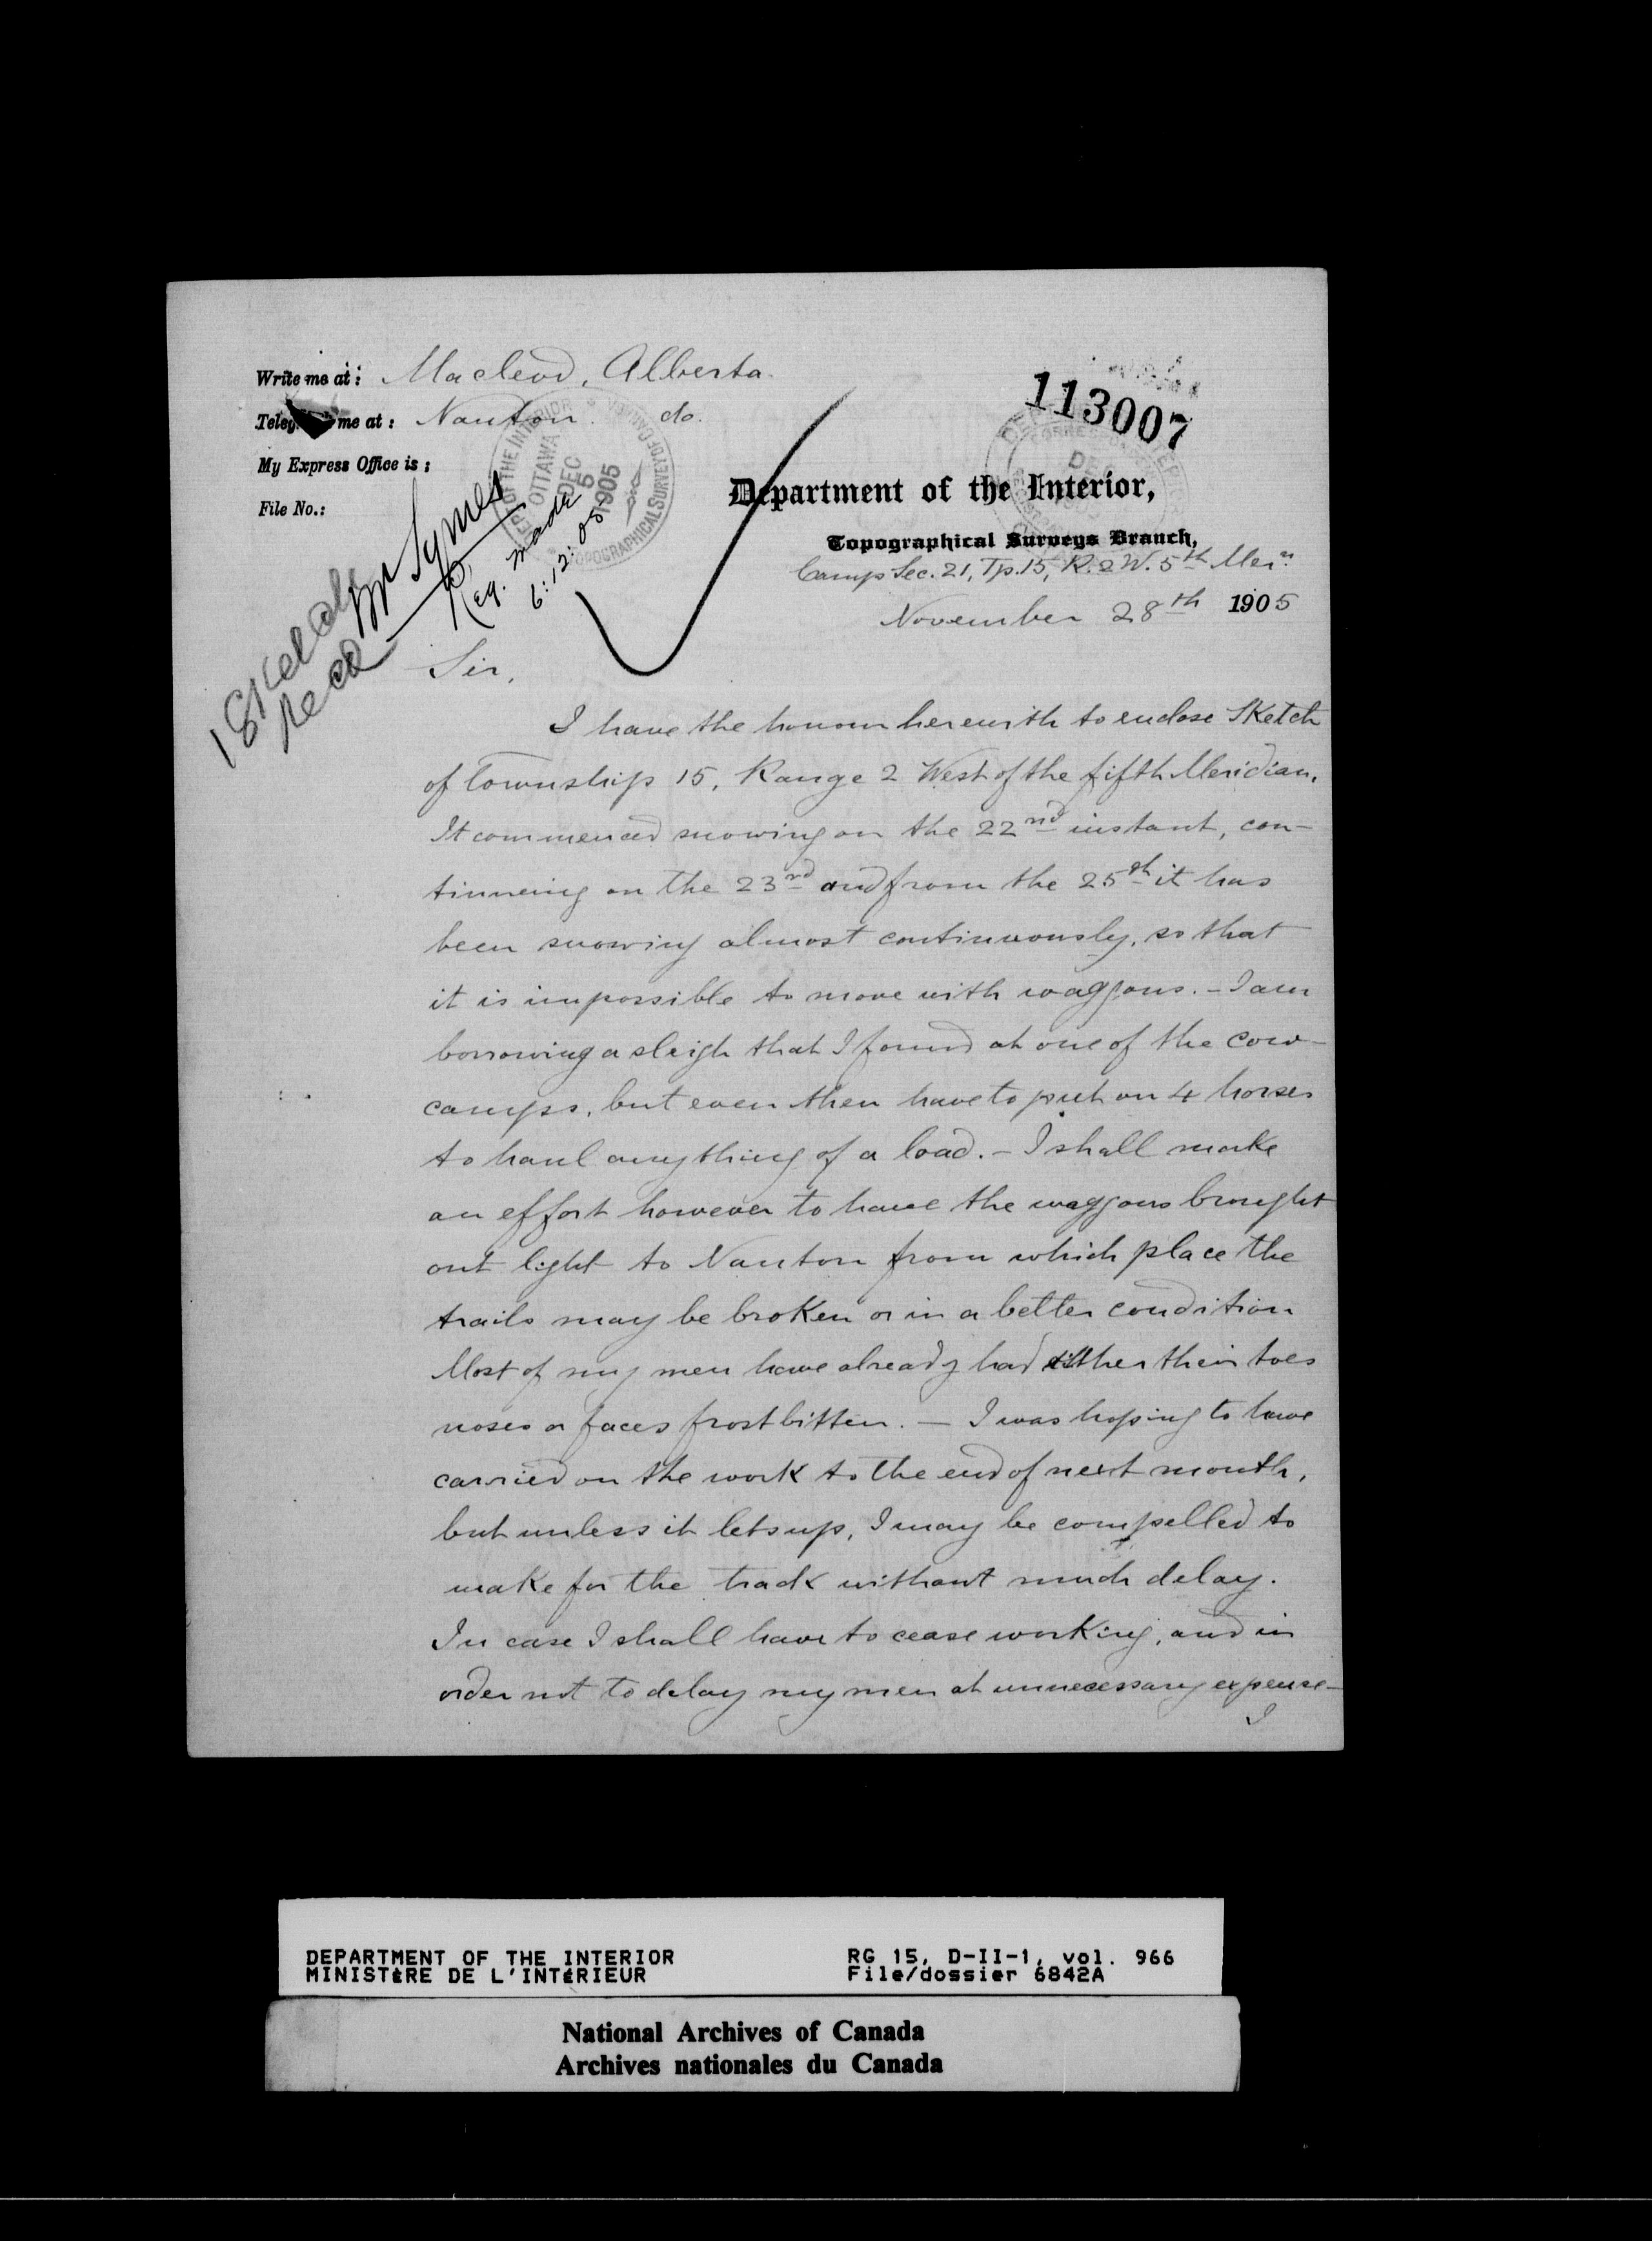 Write me at: Macleod, Alberta.
Telegraph me at: Nanton. do.
My Express Office is:
File No.:
113007
DEPT OF THE INTERIOR
OTTAWA
DEC
5
1905
TOPOGRAPHICAL SURVEY OF CANADA
Department of the Interior,
Topographical Surveys Branch,
Camp Sec. 21, Tp. 15, R. 2 W. 5th Mern.
November 28th 1905
Mr Symes
Reg. made
6:12:05
1 Sketch
Recd
Sir,
I have the honour herewith to enclose Sketch
of Township 15, Range 2 West of the fifth Meridian.
It commenced snowing on the 22nd instant, con-
tinueing on the 23rd and from the 25th it has
been snowing almost continuously, so that
it is impossible to move with waggons. - I am
borrowing a sleigh that I found at one of the cow-
camps, but even then have to put on 4 horses
to haul anything of a load. - I shall make
an effort however to have the waggons brought
out light to Nanton from which place the
trails may be broken or in a better condition
Most of my men have already had either their toes
noses or faces frostbitten. - I was hoping to have
carried on the work to the end of next month,
but unless it lets up, I may be compelled to
make for the track without much delay.
In case I shall have to cease working, and in
order not to delay my men at unnecessary expense-
I
DEPARTMENT OF THE INTERIOR
MINISTÈRE DE L'INTÉRIEUR
RG 15, D-II-1, vol. 966
File/dossier 6842A
National Archives of Canada
Archives nationales du Canada